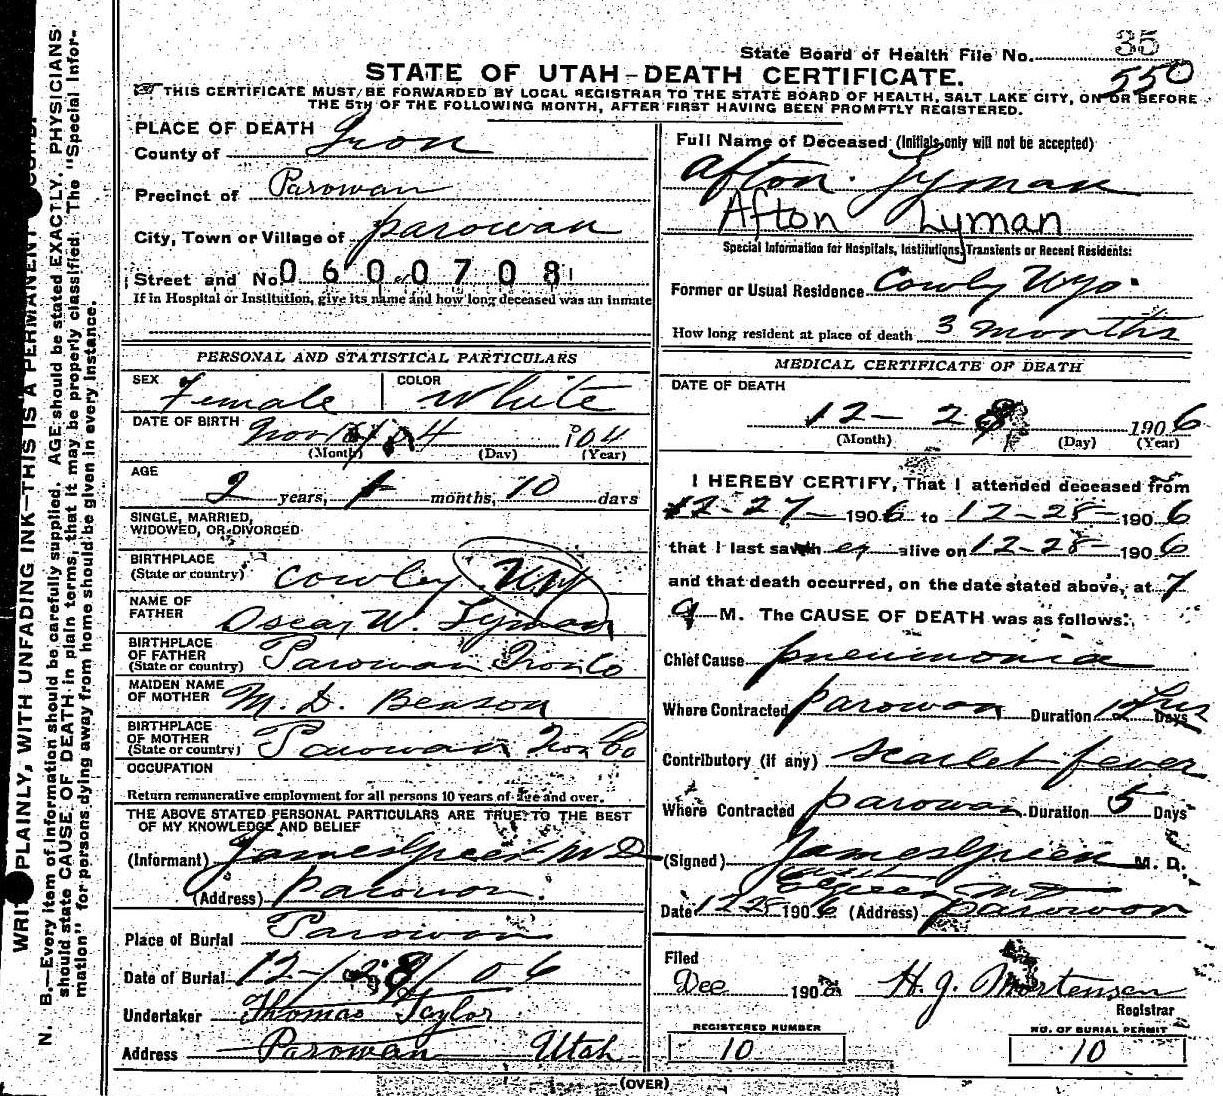 State Board of Health File No. 35
550
STATE OF UTAH-DEATH CERTIFICATE.
THIS CERTIFICATE MUST BE FORWARDED BY LOCAL REGISTRAR TO THE STATE BOARD OF HEALTH, SALT LAKE CITY, ON OR BEFORE
THE 5TH OF THE FOLLOWING MONTH, AFTER FIRST HAVING BEEN PROMPTLY REGISTERED.
PLACE OF DEATH
County of Iron
Precinct of Parowan
City, Town or Village of parowan
Street and No. 0600708
If in Hospital or Institution, give its name and how long deceased was an inmate
PERSONAL AND STATISTICAL PARTICULARS
SEX Female COLOR White
DATE OF BIRTH Nov 04 104
(Month) (Day) (Year)
AGE
2 years, 1 months, 10 days
SINGLE, MARRIED,
WIDOWED, OR DIVORCED
BIRTHPLACE
(State or country) Cowley Wy
NAME OF
FATHER Oscar W. Lyman
BIRTHPLACE
OF FATHER
(State or country) Parowan Iron Co
MAIDEN NAME
OF MOTHER M. D. Beason
BIRTHPLACE
OF MOTHER
(State or country) Parowan Iron Co
OCCUPATION
Return remunerative employment for all persons 10 years of age and over.
THE ABOVE STATED PERSONAL PARTICULARS ARE TRUE TO THE BEST
OF MY KNOWLEDGE AND BELIEF
(Informant) James Green M D
(Address) Parowan.
Place of Burial Parowan
Date of Burial 12- 06
Undertaker Thomas Taylor
Address Parowan Utah
Full Name of Deceased (Initials only will not be accepted)
Afton. Lyman
Afton Lyman
Special Information for Hospitals, Institutions, Transients or Recent Residents:
Former or Usual Residence Cowly Wyo.
How long resident at place of death 3 months
MEDICAL CERTIFICATE OF DEATH
DATE OF DEATH
12- 28 1906
(Month) (Day) (Year)
I HEREBY CERTIFY, That I attended deceased from
12-27- 1906 to 12-28- 1906
that I last saw h er alive on 12-28- 1906
and that death occurred, on the date stated above, at 7
a M. The CAUSE OF DEATH was as follows:
Chief Cause pneumonia
Where Contracted parowan Duration Days
Contributory (if any) scarlet fever
Where Contracted parowan Duration 5 Days
(Signed) James Green M. D.
Date 12 28 1906 (Address) parowan
Filed
Dec 190 H. J. Mortensen
Registrar
REGISTERED NUMBER
10
NO. OF BURIAL PERMIT
10
(OVER)
WRITE PLAINLY, WITH UNFADING INK—THIS IS A PERMANENT RECORD.
N. B.—Every item of information should be carefully supplied. AGE should be stated EXACTLY. PHYSICIANS
should state CAUSE OF DEATH in plain terms, that it may be properly classified. The "Special Infor-
mation" for persons dying away from home should be given in every instance.